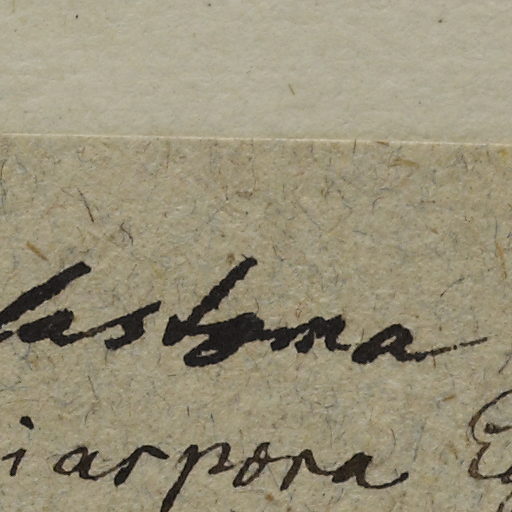 lastoma
iarpora E